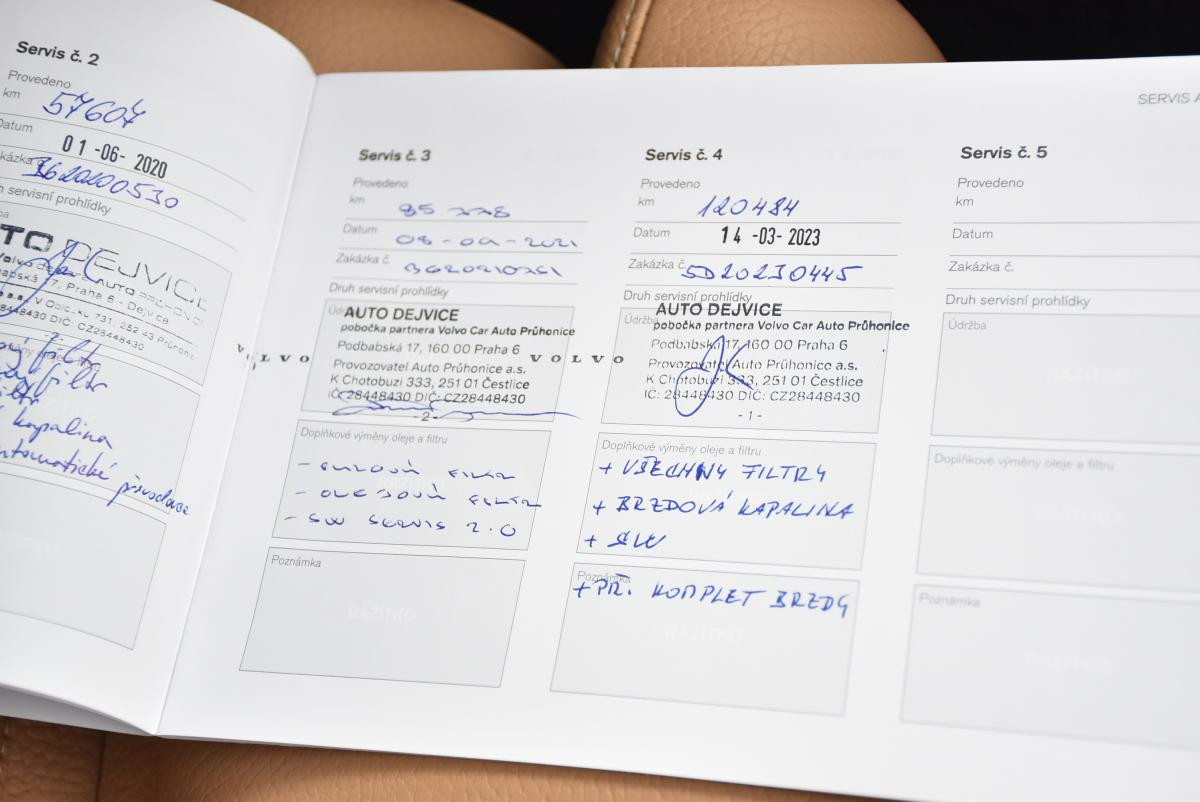 Servis č. 2
Provedeno
km 57607
Datum 01-06-2020
Zakázka
servisní prohlídky
DEJVICE
Praha 6 - Dejvice
731, 252 43
28448430 DIČ: CZ28448430
kapalina
SERVIS
Servis č. 3
Provedeno
km
Datum
Zakázka č.
Druh servisní prohlídky
AUTO DEJVICE
pobočka partnera Volvo Car Auto Průhonice
Podbabská 17, 160 00 Praha 6
VOLVO
Provozovatel Auto Průhonice a.s.
K Chotobuzi 333, 251 01 Čestlice
IČ: 28448430 DIČ: CZ28448430
- 2 -
Doplňkové výměny oleje a filtru
- OLEJOVÝ FILTR
- SW SERVIS 2.0
Poznámka
RAZÍTKO
Servis č. 4
Provedeno
km 120484
Datum 14-03-2023
Zakázka č. SD20230445
Druh servisní prohlídky
Údržba
AUTO DEJVICE
pobočka partnera Volvo Car Auto Průhonice
Podbabská 17, 160 00 Praha 6
VOLVO
Provozovatel Auto Průhonice a.s.
K Chotobuzi 333, 251 01 Čestlice
IČ: 28448430 DIČ: CZ28448430
- 1 -
Doplňkové výměny oleje a filtru
+ VŠECHNY FILTRY
+ BRZDOVÁ KAPALINA
+ SW
Poznámka
+ PŘ. KOMPLET BRZDY
RAZÍTKO
Servis č. 5
Provedeno
km
Datum
Zakázka č.
Druh servisní prohlídky
Údržba
RAZÍTKO
Doplňkové výměny oleje a filtru
RAZÍTKO
Poznámka
RAZÍTKO